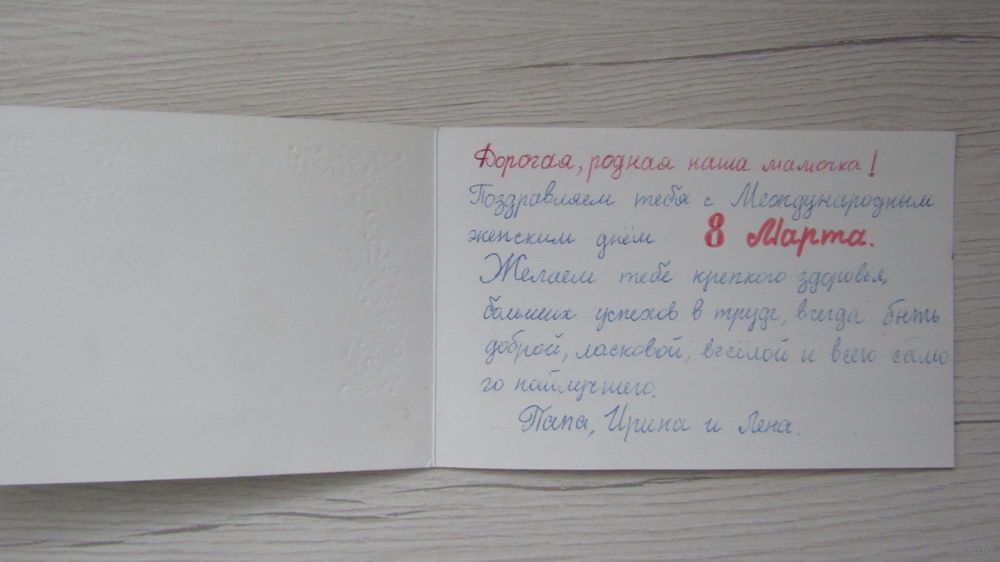 Дорогая, родная наша мамочка!
Поздравляем тебя с Международным
женским днём 8 Марта.
Желаем тебе крепкого здоровья,
больших успехов в труде, всегда быть
доброй, ласковой, весёлой и всего само
го найлучшего.
Папа, Ирина и Лена.